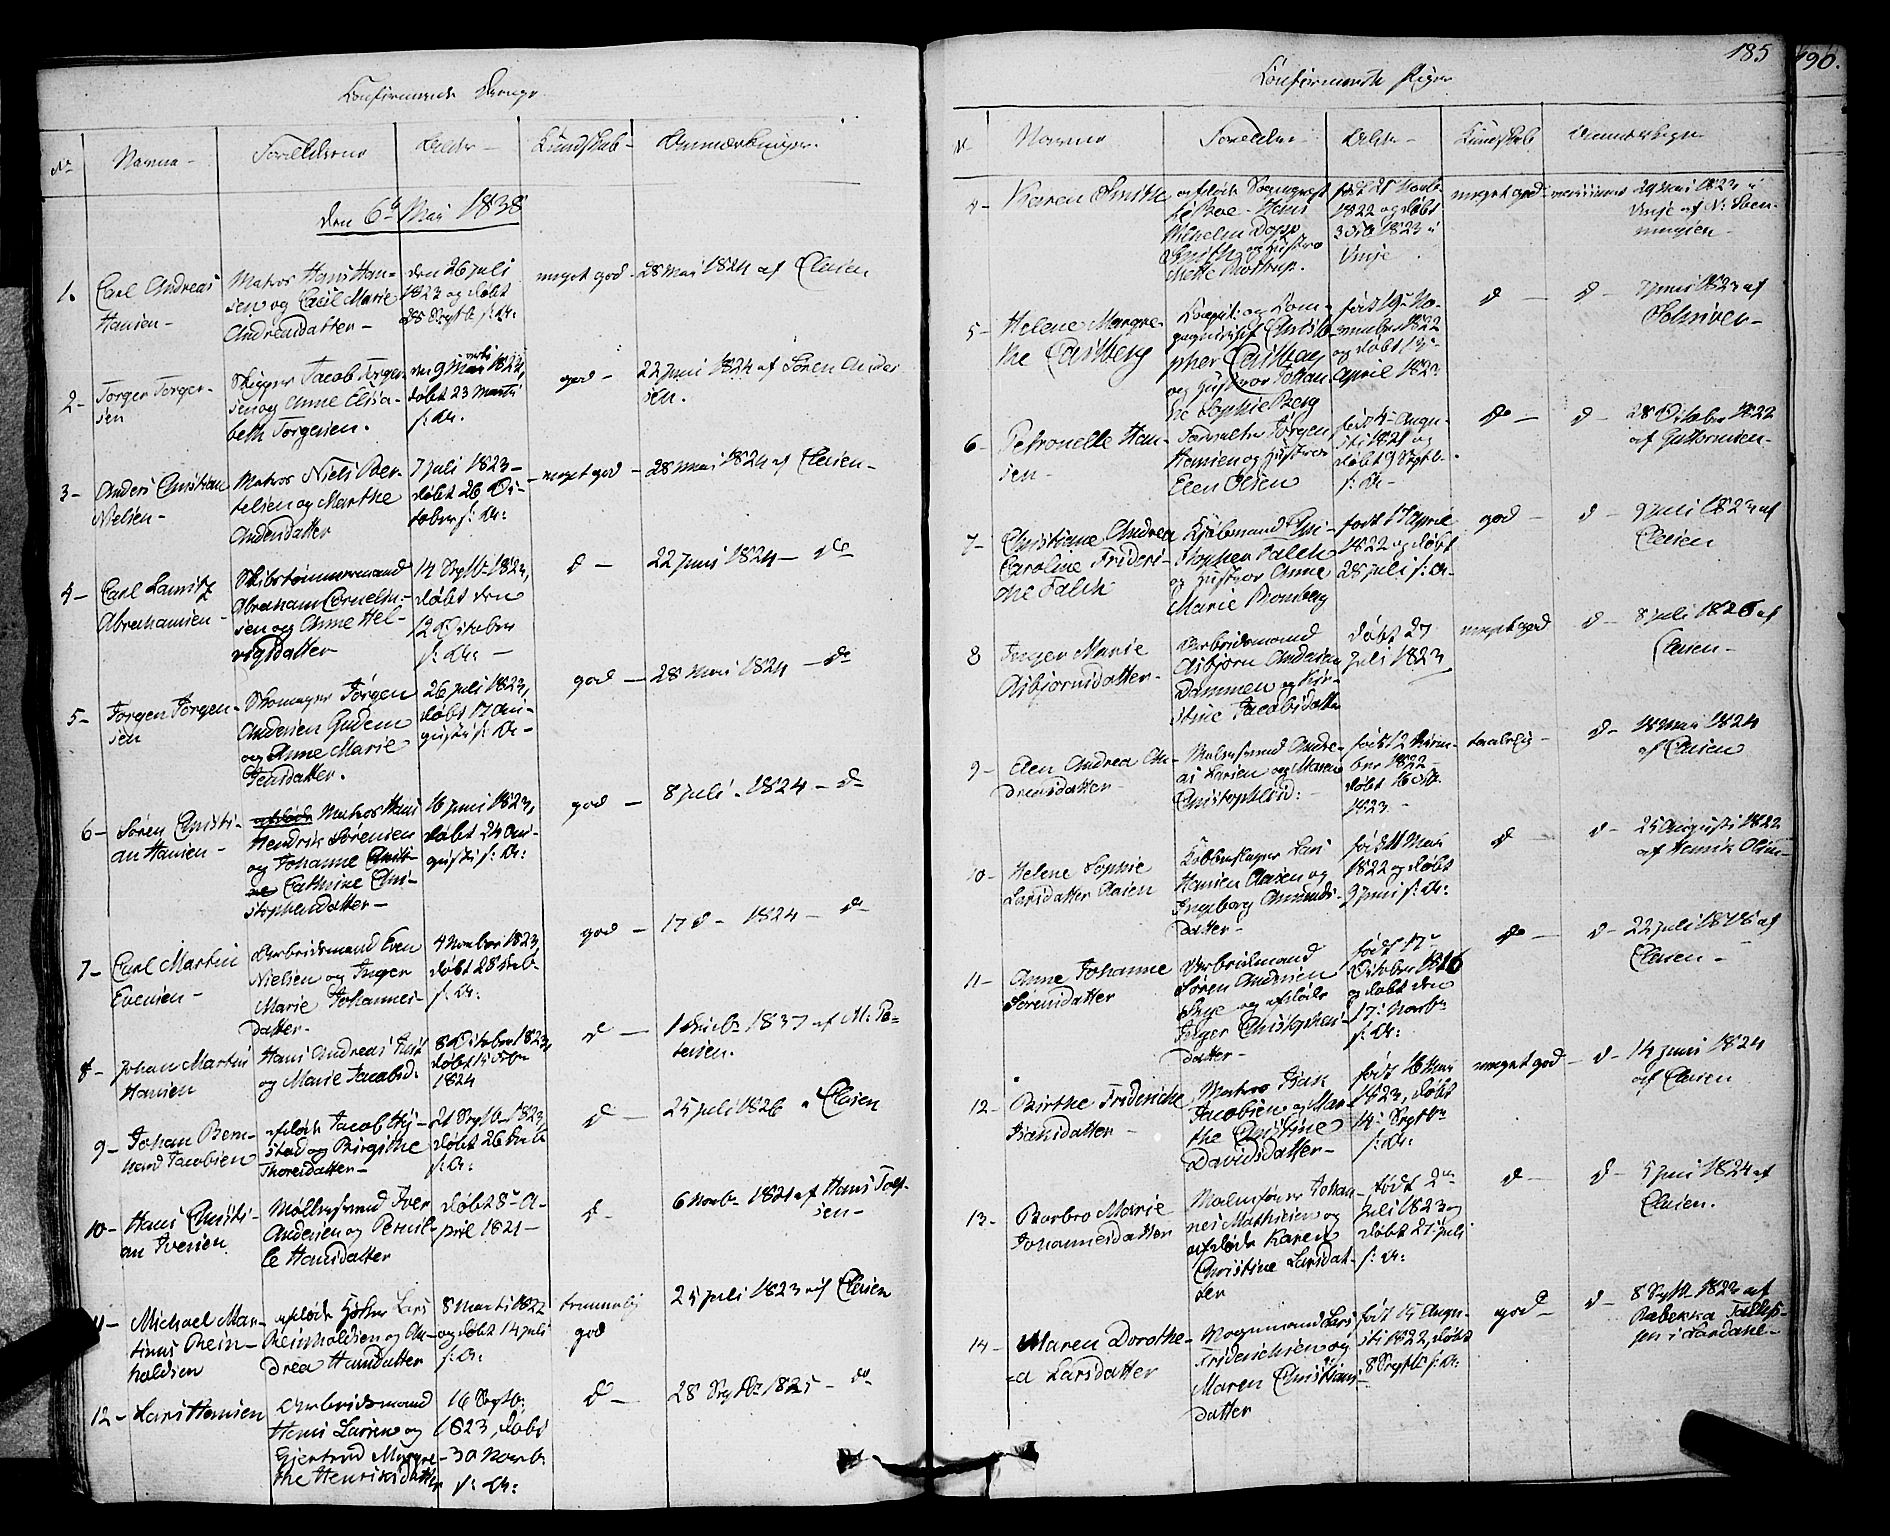 Confirmerede Drenge
No Navne Forældrene Alder Kundskab Anmærkninger.
den 6te Mai 1838
1. Carl Andreas
Hansen
Matros Hans Han-
sen og Cecil Marie
Andreasdatter
den 26 juli
1823 og døbt
28 Septb s: A:
meget god
28 Mai 1824 af Clasen
2 Jørgen Jørger-
sen
Skipper Jacob Jørgen-
sen og Anne Elisa-
beth Jørgensen.
døbt 23 Marti
s: A:
god
22 juni 1824 af Søren Ander
sen.
3 Anders Christian
Nielsen
Matros Niels Ber-
telsen og Marthe
Andersdatter
7 juli 1823
døbt 26 Oc-
tober s: A:
meget god
28 Mai 1824 af Clasen
4 Carl Lauritz
Abrahamsen
Skibstømmermand
Abraham Corneliu-
sen og Anne Hel-
vigsdatter
14 Septb 1823,
døbt den
12 October
s: A:
d
22 juni 1824 do
5 Jørgen Jørgen-
sen
Skomager Jørgen
Andersen Gudem
og Anne Marie
Jensdatter.
26 juli 1823,
døbt 17 Au-
gusti s: A:
god
28 Mai 1824 do
6 Søren Christi-
an Hansen
Matros Hans
Hendrik Sørensen
og Johanne
Cathrine Chri-
stophersdatter
16 juni 1823,
døbt 24 Au-
gusti s: A:
god
8 juli 1824 do
7 Carl Martin
Evensen
Arbeidsmand Even
Nielsen og Inger
Marie Johannes-
datter
4 Novber 1823,
døbt 28
s: A:
god
17 d 1824 do
8 Johan Martin
Hansen
Hans Andreas
og Marie Jacobsd:
8 October 1823,
døbt
1824
d
1837 af M: Pe-
tersen.
9 Johan Bern-
hard Jacobsen
afdøde Jacob
og Birgithe
Thoresdatter
21 Septb 1823,
døbt 26
s: A:
d
25 juli 1826 Clasen
10 Hans Christi-
an Iversen
Møllersvend Iver
Andersen og Pernil-
le Hansdatter
døbt 8 A-
pril 1821
d
6 Novb 1821 af Hans
sen
11 Michael Mar-
tinus Rein-
holdsen
afdøde Lars
Reinholdsen og An-
drea Hansdatter
8 Marti 1822
og døbt 14 juli
s: A:
temmelig
god
25 juli 1823 af Clasen
12 Lars Hansen
Arbeidsmand
Hans Larsen og
Gjertrud Margre-
the Henriksdatter
16 Septb:
1823, døbt
30 Novb
s: A:
d
28 Septb 1825 do
185
190.
Confirmerede Piger
N Navne Forældre Alder Kundskab Anmærkninger
4 Karen Smith
afdøde Sogneprest
Hans
Wilhelm Dopp
Smith og Hustro
Mette
født 21 Novb
1822 og døbt
1823 i
Vinje
meget god
29 Mai 1823 i
Vinje af N: Søn-
5 Helene Margre-
the Carlberg
Christo-
pher Carlberg
og Hustroe Johan-
ne Sophie Berg
født 19 No-
vember 1822
og døbt
April 1823
d
d
juni 1823 af
Schriver
6 Petronelle Han-
sen
Jørgen
Hansen og Hustroe
Elen Olsen
født 4 Augu-
sti 1821 og
døbt 9 Septb
s: A
do
d
28 October 1822
af Guttormsen
7 Christiane Andrea
Caroline Frideri-
che Falch
Kjøbmand Chri-
stopher Falch
og Hustroe Anne
Marie Blomberg
født 17 April
1822 og døbt
28 juli s: A
god
d
9 juli 1823 af
Clasen
8 Inger Marie
Asbjørnsdatter
Arbeidsmand
Asbjørn Andersen
Dammen og Kir-
stine Jacobsdatter
døbt 27
juli 1823
meget god
d
8 juli 1826 af
Clasen
9 Elen Andrea An-
dreasdatter
Andre-
as Larsen og Maren
Christophersd:
født 12
ber 1822
døbt 16
1823
taalelig
d
18 Mai 1824
af Clasen
10 Helene Sophie
Larsdatter Clasen
Kobberslager Lars
Hansen Clasen og
Ingeborg Amunds-
datter
født 11 Mai
1822 og døbt
9 juni s: A:
d
d
25 Augusti 1822
af Henrik Olsen
11 Anne Johanne
Sørensdatter
Arbeidsmand
Søren Andersen
Skye og afdøde
Inger Christophers-
datter
født 17
October 1816
og døbt den
17: Novb
s: A:
do
d
22 juli af
Clasen
12 Birthe Fridericke
Isaksdatter
Matros Isak
Jacobsen og Mar-
the Christine
Davidsdatter
født 16 Mai
1823, døbt
14: Septb
s: A:
meget god
d
14 juni 1824
af Clasen
13 Barbro Marie
Johannesdatter
Johan-
nes Mathiesen og
afdøde Karen
Christine Larsdat-
ter
født 2
juli 1823 og
døbt 27 juli
s: A:
d
d
5 juni 1824 af
Clasen.
14 Maren Dorothe-
a Larsdatter
Vognmand Lars
Friderichsen og
Maren Christians-
datter
født 15 Augu-
sti 1822, døbt
8 Septb s: A:
god
d
8 Septb 1822 af
Rebekka